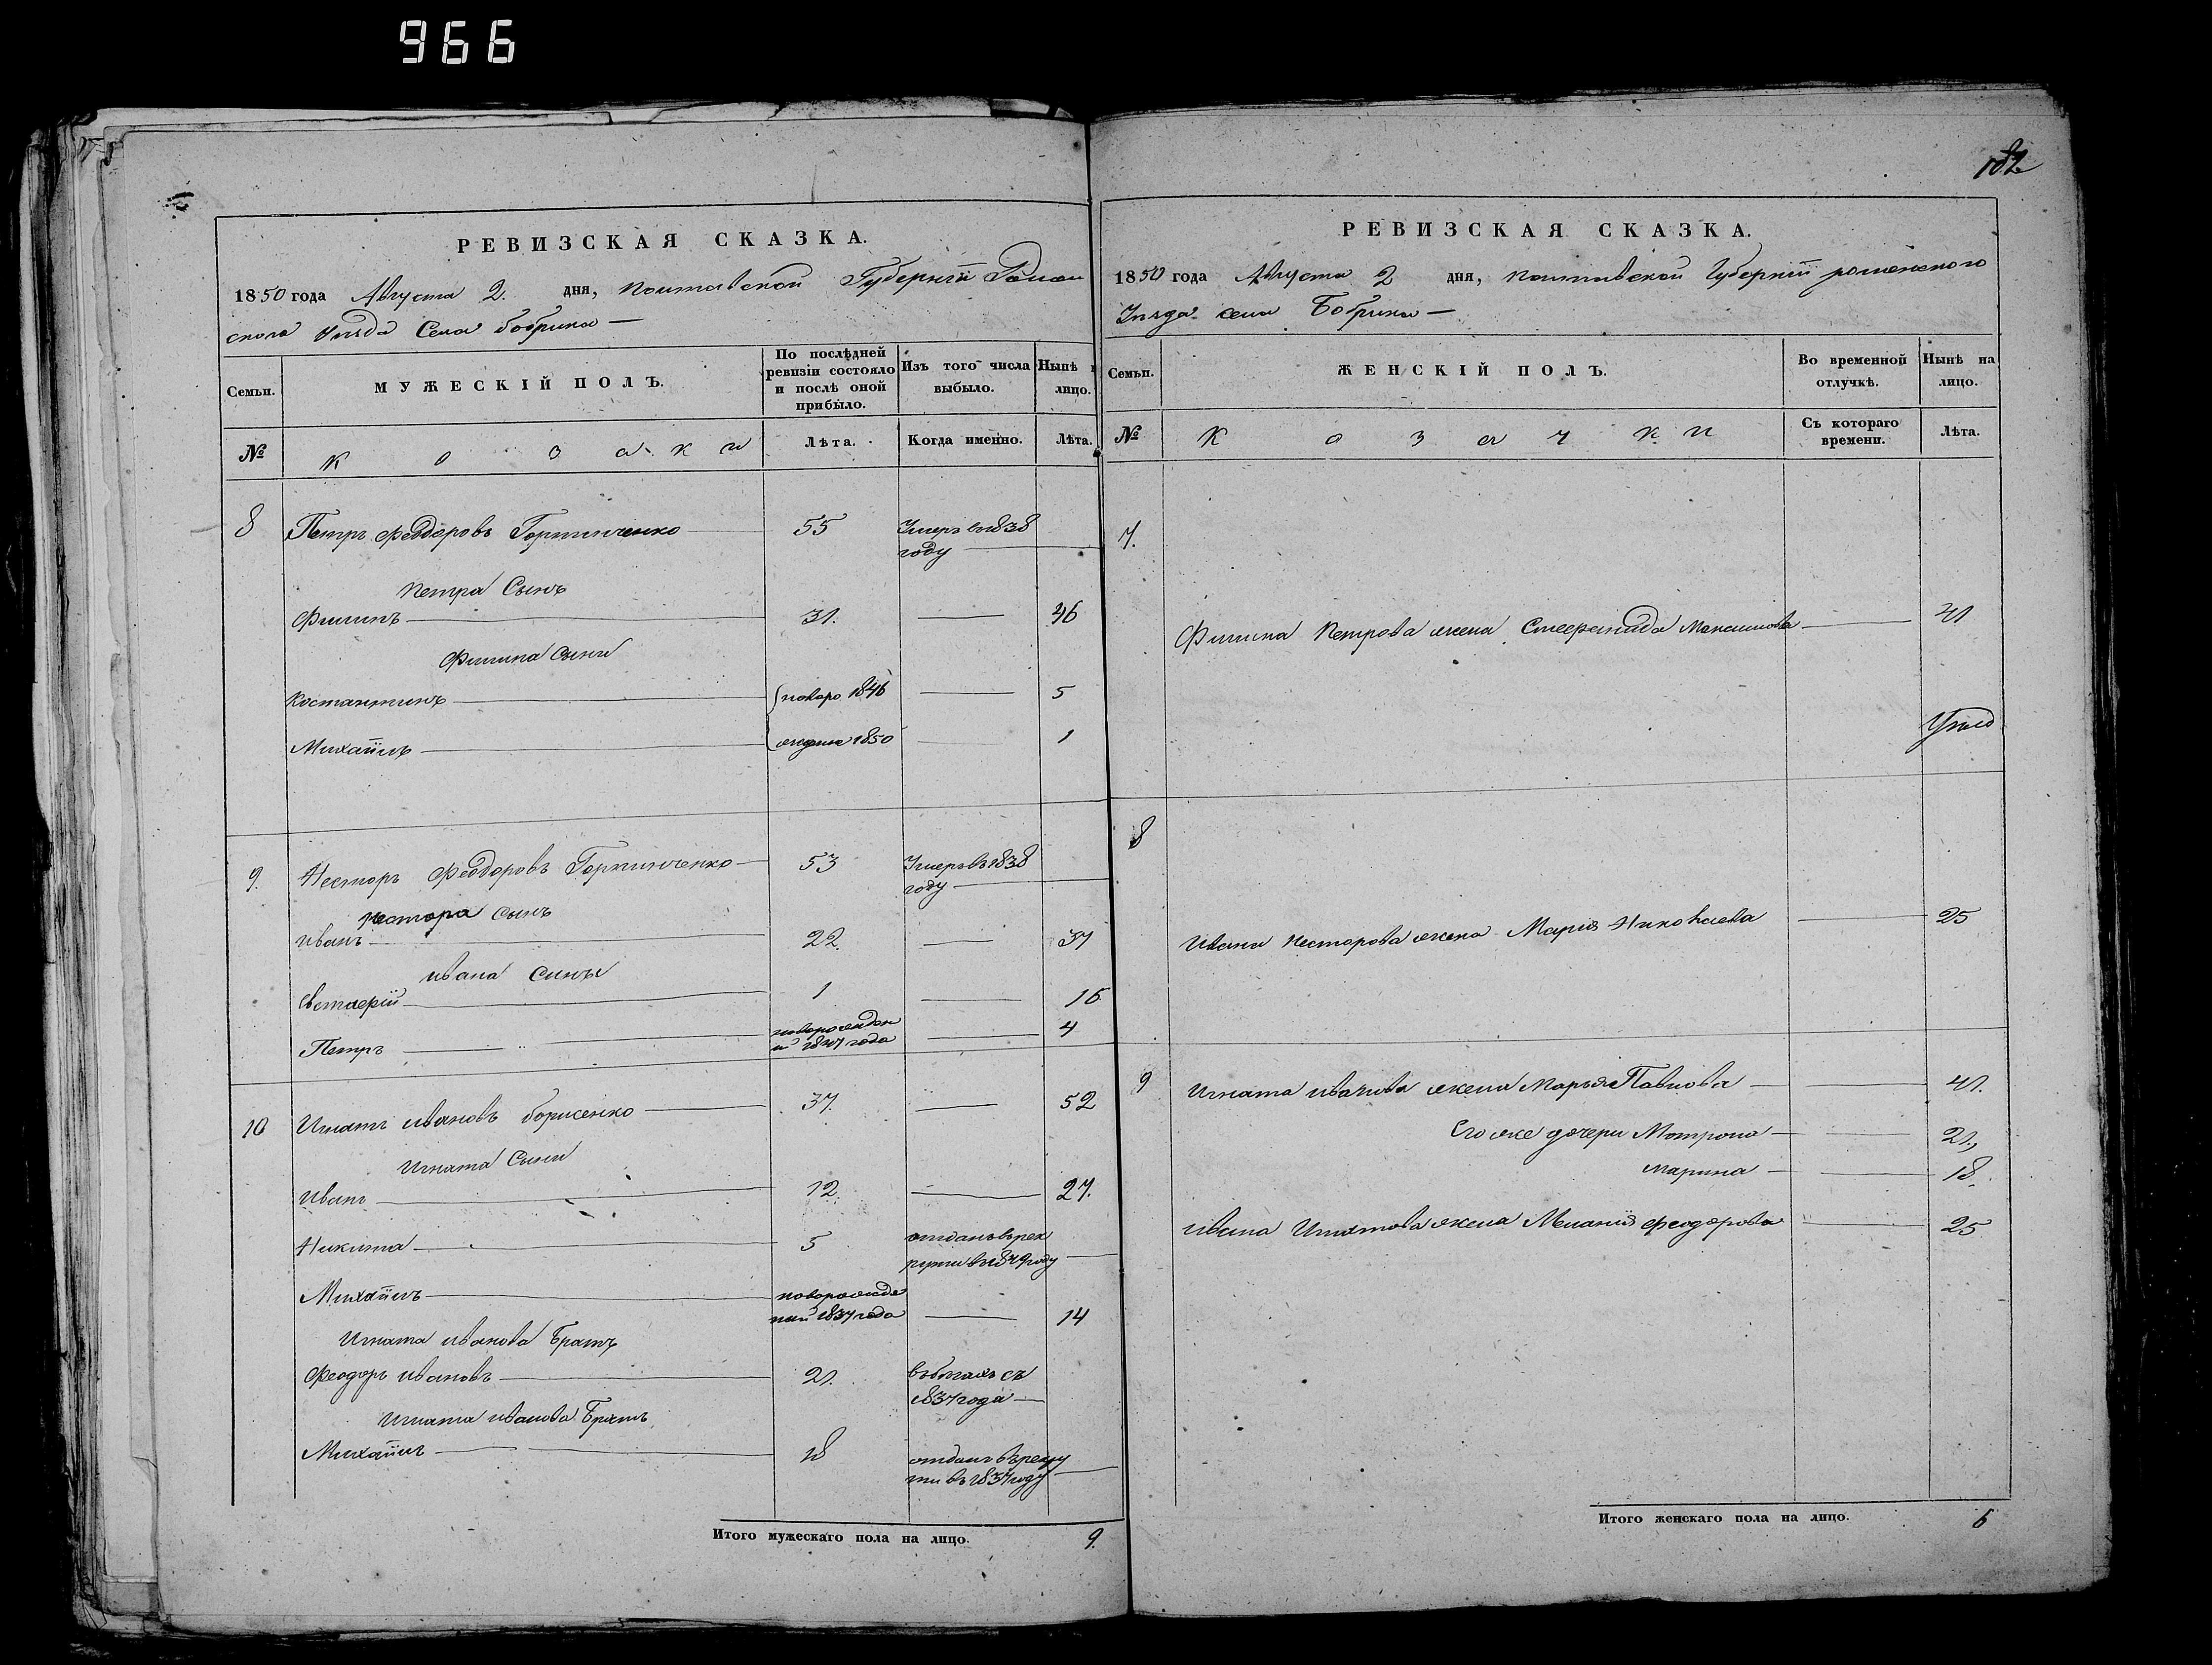 966
РЕВИЗСКАЯ СКАЗКА.
1850 года Августа 2. дня, полтавской Губернїи Ромен
ского Уѣзда Села бобрика
Семьи.
МУЖЕСКІЙ ПОЛЪ.
По послѣдней ревизіи состояло и послѣ оной прибыло.
Изъ того числа выбыло.
Нынѣ
лицо.
№
козаки
Лѣта.
Когда именно.
Лѣта.
8 Петръ феодоровъ Горпинченко 55 Умеръ в 1838
году
Петра Сынъ
Филипъ 31. 46
Филипа Сыны
Костантинъ новоро 1846 5
Михаилъ 1850 1
9. Несторъ Феодоровъ Горпинченко 53 Умеръ въ 1838
году
Нестора сынъ
иванъ 22 37
ивана сины
Евстафїй 1 16
Петръ новорожден
и 1847 года 4
10 Игнатъ ивановъ борисенко 37. 52
Игната Сыни
Иванъ 12. 27.
Никита 5 отданъ в рек
рути в 1849 году
Михаилъ новорожде
ний 1837 года 14
Игната иванова Братъ
Феодоръ ивановъ 21. въ бегахъ съ
1837 года
Игната иванова Братъ
Михаилъ 18 отданъ в рекру
ти въ 1837 году
Итого мужескаго пола на лицо. 9.
182
РЕВИЗСКАЯ СКАЗКА.
1850 года Августа 2 дня, полтавской Губернїи роменского
Уѣзда села Бобрика
Семьи.
ЖЕНСКІЙ ПОЛЪ.
Во временной отлучкѣ.
Нынѣ на лицо.
№
козачки
Съ котораго времени.
Лѣта.
7.
Филипа Петрова жена Степанида Максимова 41
8
Ивана Несторова жена Мария Николаева 25
9 Игната иванова жена Марья Павлова 41.
Его же дочери Мотрона 21,
марина 18.
ивана Игнатова жена Мелания феодорова 25
Итого женскаго пола на лицо. 6